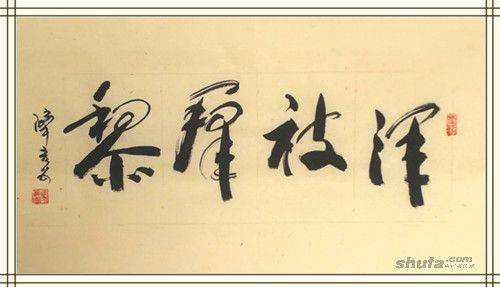 泽被群黎
shufa.com